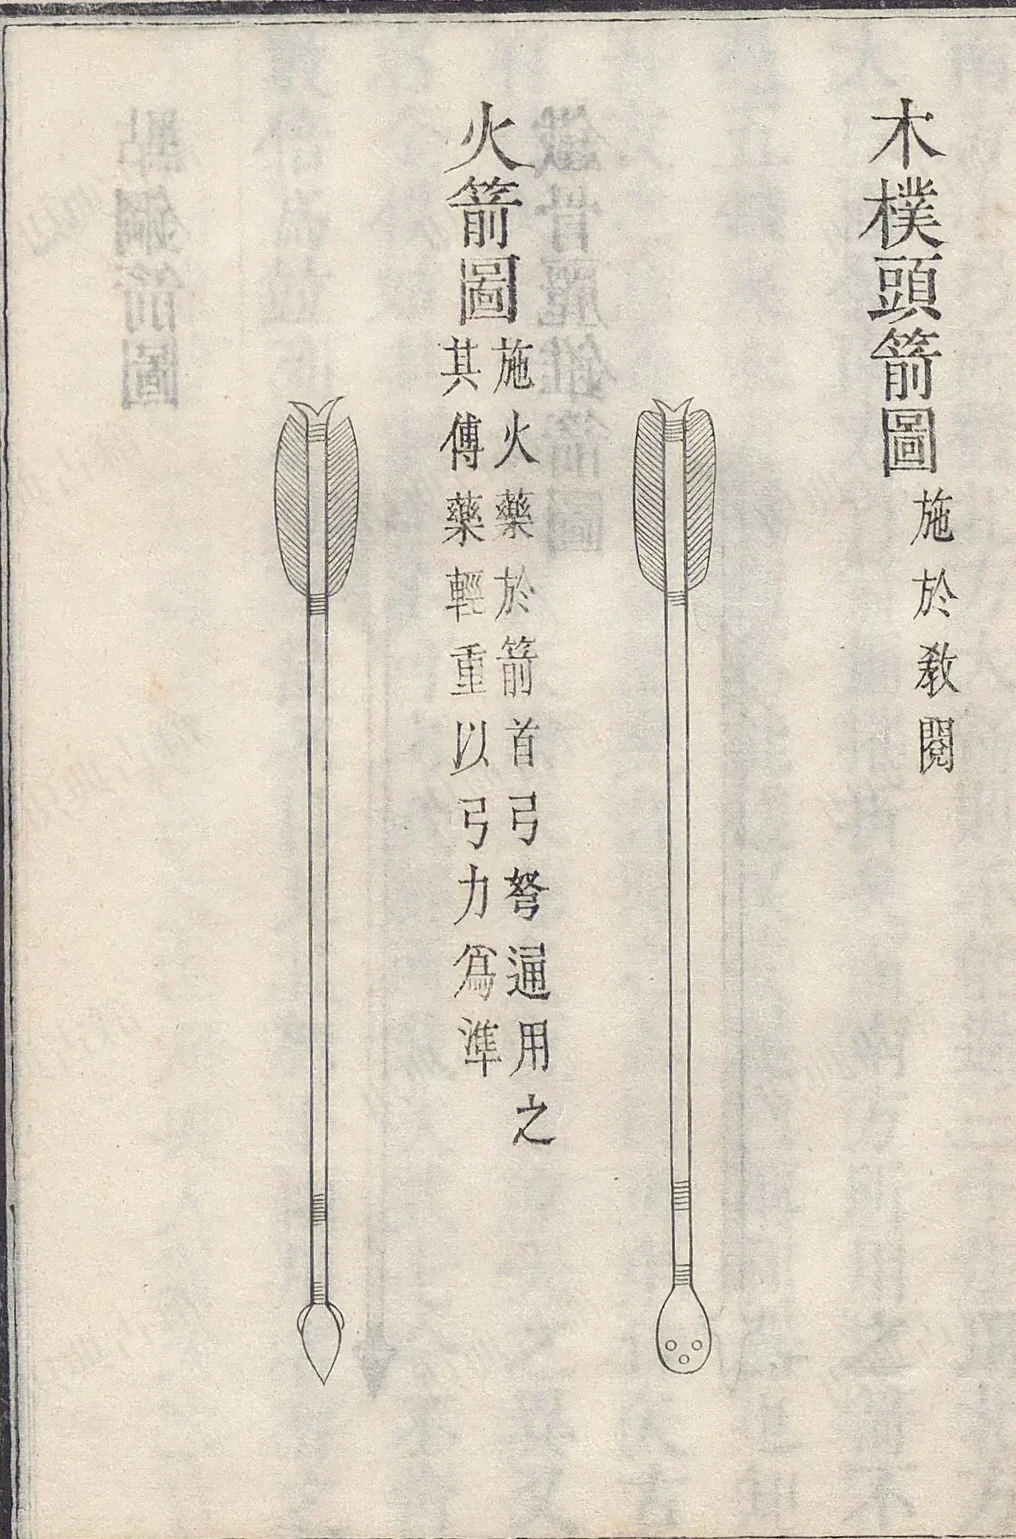 木樸頭箭圖
施於敎閱
火箭圖
施火藥於箭首弓弩通用之
其傅藥輕重以弓力爲準